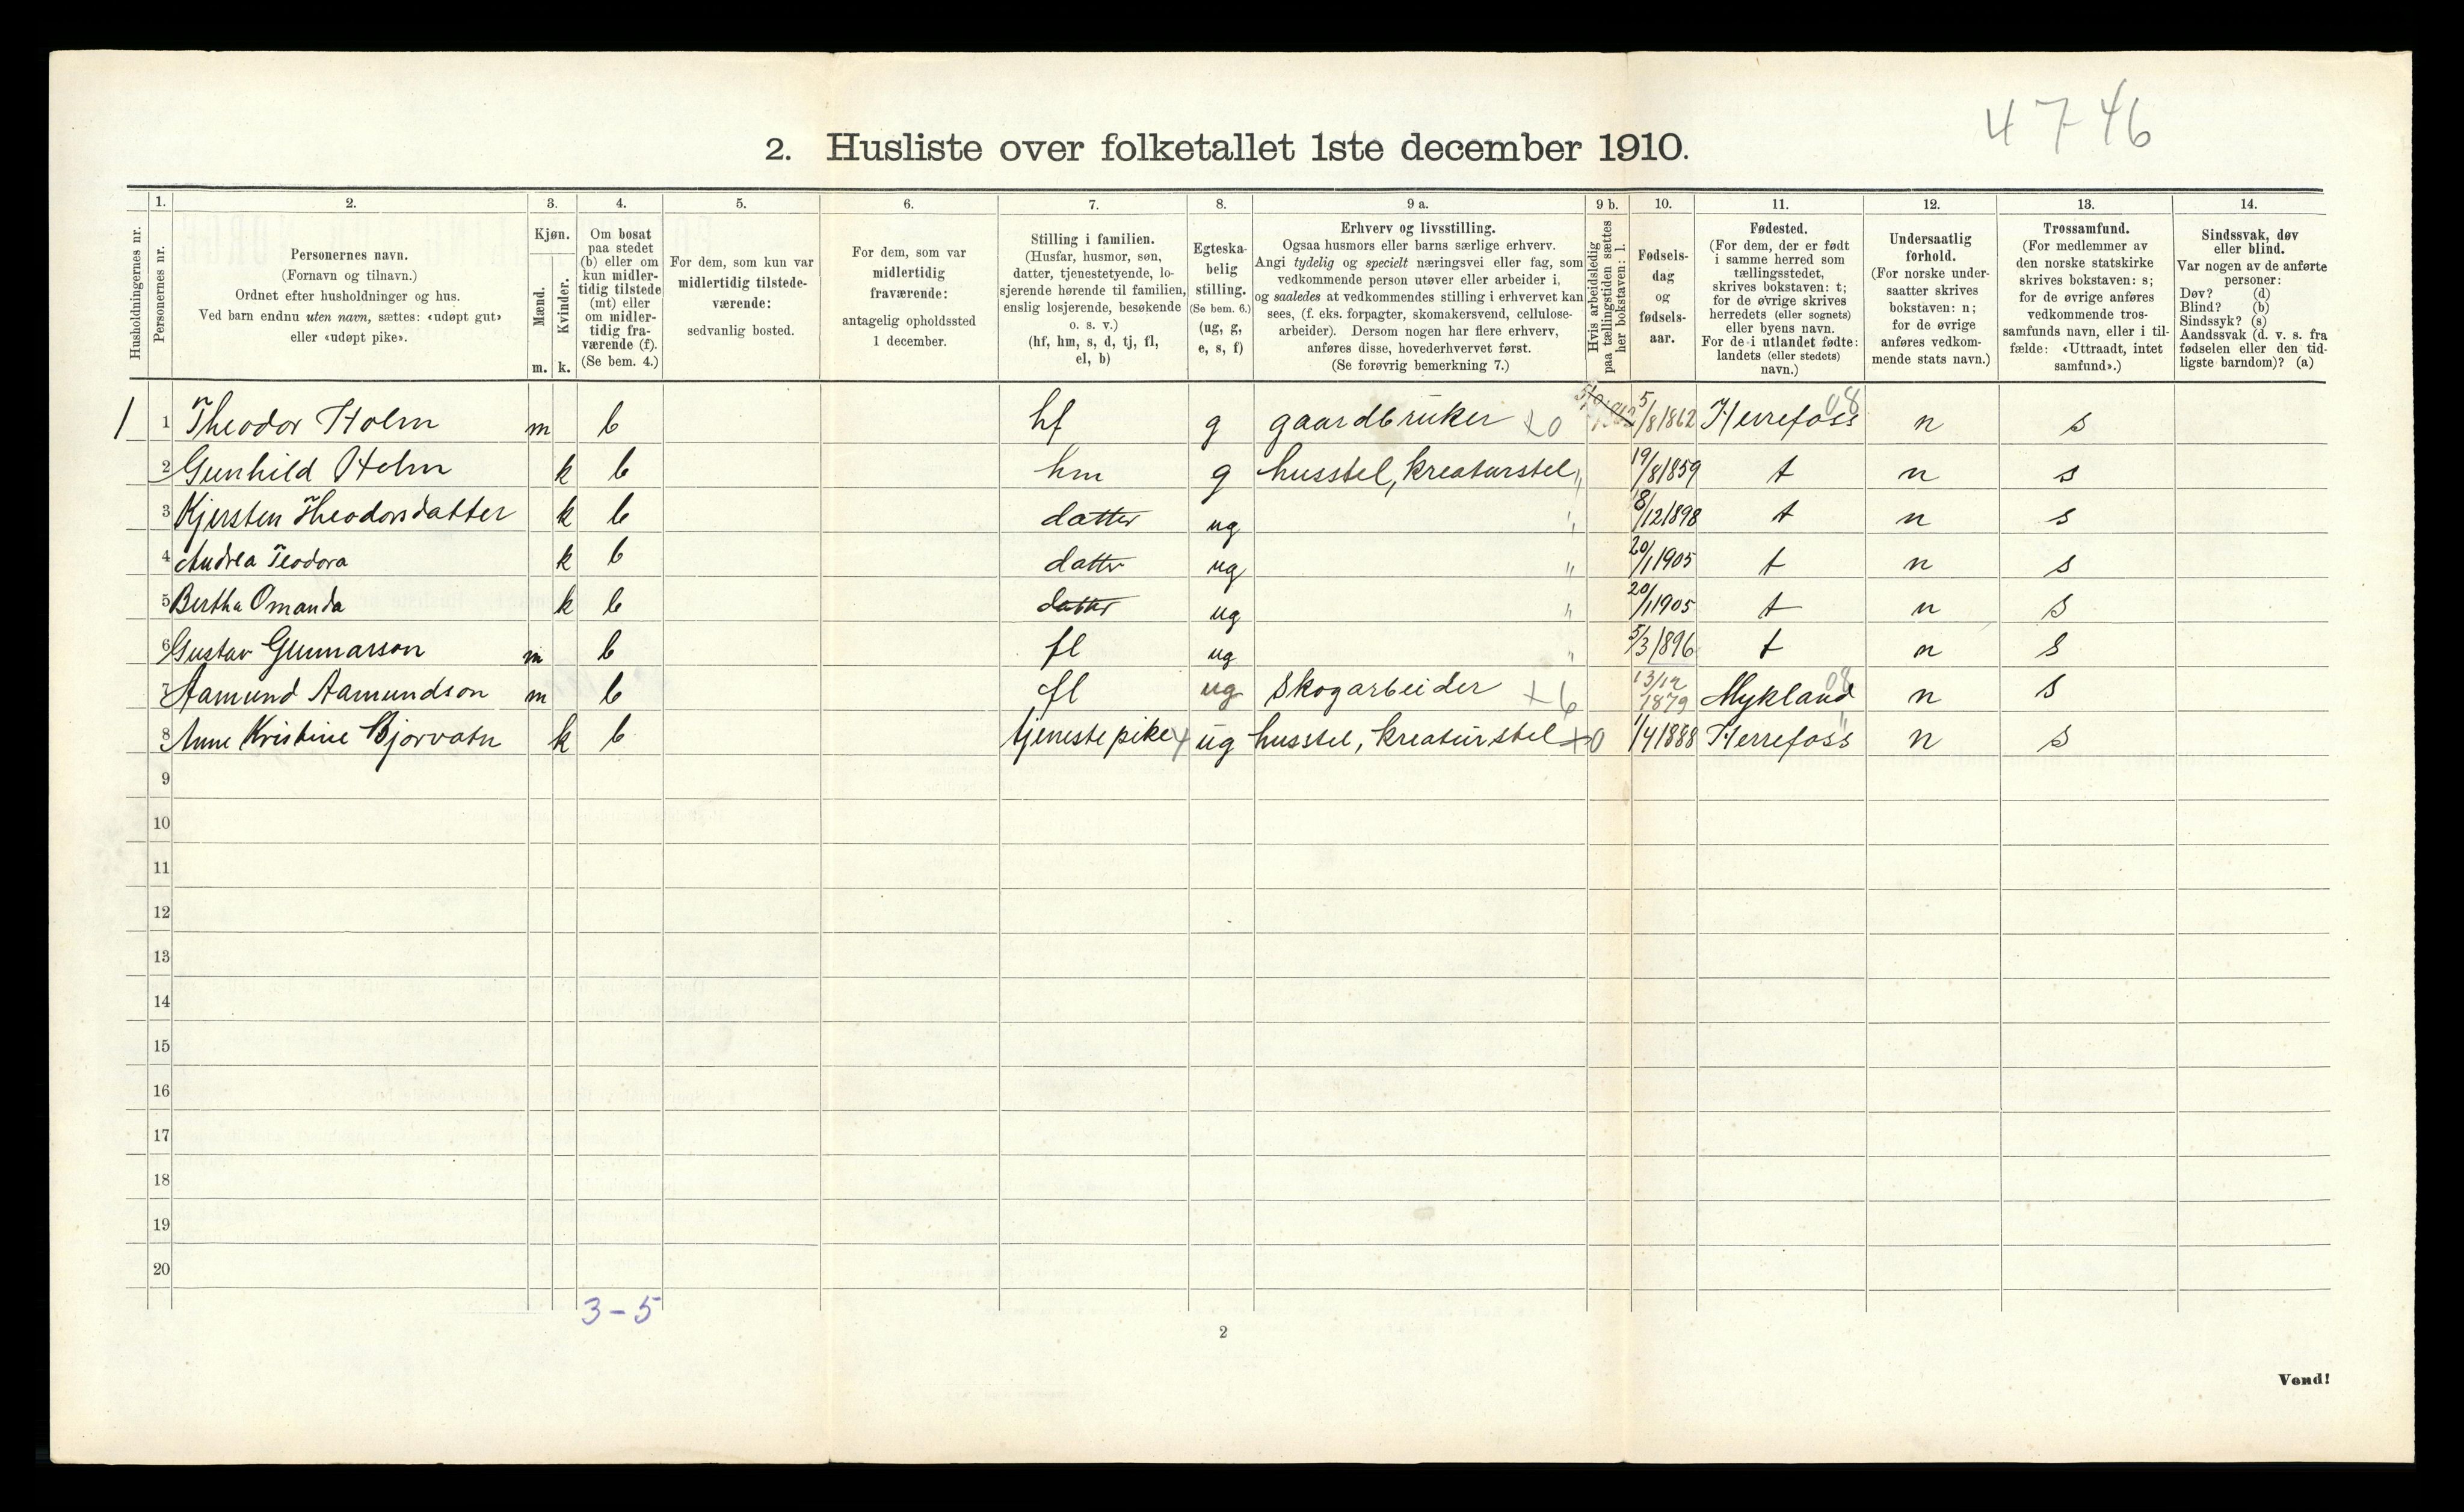 4746
2. Husliste over folketallet 1ste december 1910.
1. 2. 3. 4. 5. 6. 7. 8. 9 a. 9 b. 10. 11. 12. 13. 14.
Husholdningernes nr.
Personernes nr.
Personernes navn.
(Fornavn og tilnavn.)
Ordnet efter husholdninger og hus.
Ved barn endnu uten navn, sættes: «udøpt gut»
eller «udøpt pike».
Kjøn.
Mænd.
Kvinder.
m. k.
Om bosat
paa stedet
(b) eller om
kun midler-
tidig tilstede
(mt) eller
om midler-
tidig fra-
værende (f).
(Se bem. 4.)
For dem, som kun var
midlertidig tilstede-
værende:
sedvanlig bosted.
For dem, som var
midlertidig
fraværende:
antagelig opholdssted
1 december.
Stilling i familien.
(Husfar, husmor, søn,
datter, tjenestetyende, lo-
sjerende hørende til familien,
enslig losjerende, besøkende
o. s. v.)
(hf, hm, s, d, tj, fl,
el, b)
Egteska-
belig
stilling.
(Se bem. 6.)
(ug, g,
e, s, f)
Erhverv og livsstilling.
Ogsaa husmors eller barns særlige erhverv.
Angi tydelig og specielt næringsvei eller fag, som
vedkommende person utøver eller arbeider i,
og saaledes at vedkommendes stilling i erhvervet kan
sees, (f. eks. forpagter, skomakersvend, cellulose-
arbeider). Dersom nogen har flere erhverv,
anføres disse, hovederhvervet først.
(Se forøvrig bemerkning 7.)
Hvis arbeidsledig
paa tællingstiden sættes
her bokstaven: l.
Fødsels-
dag
og
fødsels-
aar.
Fødested.
(For dem, der er født
i samme herred som
tællingsstedet,
skrives bokstaven: t;
for de øvrige skrives
herredets (eller sognets)
eller byens navn.
For de i utlandet fødte:
landets (eller stedets)
navn.)
Undersaatlig
forhold.
(For norske under-
saatter skrives
bokstaven: n;
for de øvrige
anføres vedkom-
mende stats navn.)
Trossamfund.
(For medlemmer av
den norske statskirke
skrives bokstaven: s;
for de øvrige anføres
vedkommende tros-
samfunds navn, eller i til-
fælde: «Uttraadt, intet
samfund».)
Sindssvak, døv
eller blind.
Var nogen av de anførte
personer:
Døv? (d)
Blind? (b)
Sindssyk? (s)
Aandssvak (d. v. s. fra
fødselen eller den tid-
ligste barndom)? (a)
1 1 Theodor Holm m b hf g gaardbruker x0 5/8 1862 Herrefoss 08 n s
2 Gunhild Holm k b hm g husstel, kreaturstel " 19/8 1859 t n s
3 Kjersten Theodorsdatter k b datter ug " 8/12 1898 t n s
4 Andrea Teodora k b datter ug " 20/1 1905 t n s
5 Bertha Omanda k b datter ug " 20/1 1905 t n s
6 Gustav Gunnarson m b fl ug " 5/3 1896 t n s
7 Aamund Aamundson m b fl ug skogarbeider x6 13/12 1879 Mykland 08 n s
8 Anne Kristine Bjorvatn k b tjenestepike ug husstel, kreaturstel x0 1/4 1888 Herrefoss " n s
9
10
11
12
13
14
15
16
17
18
19
20
3-5
2
Vend!